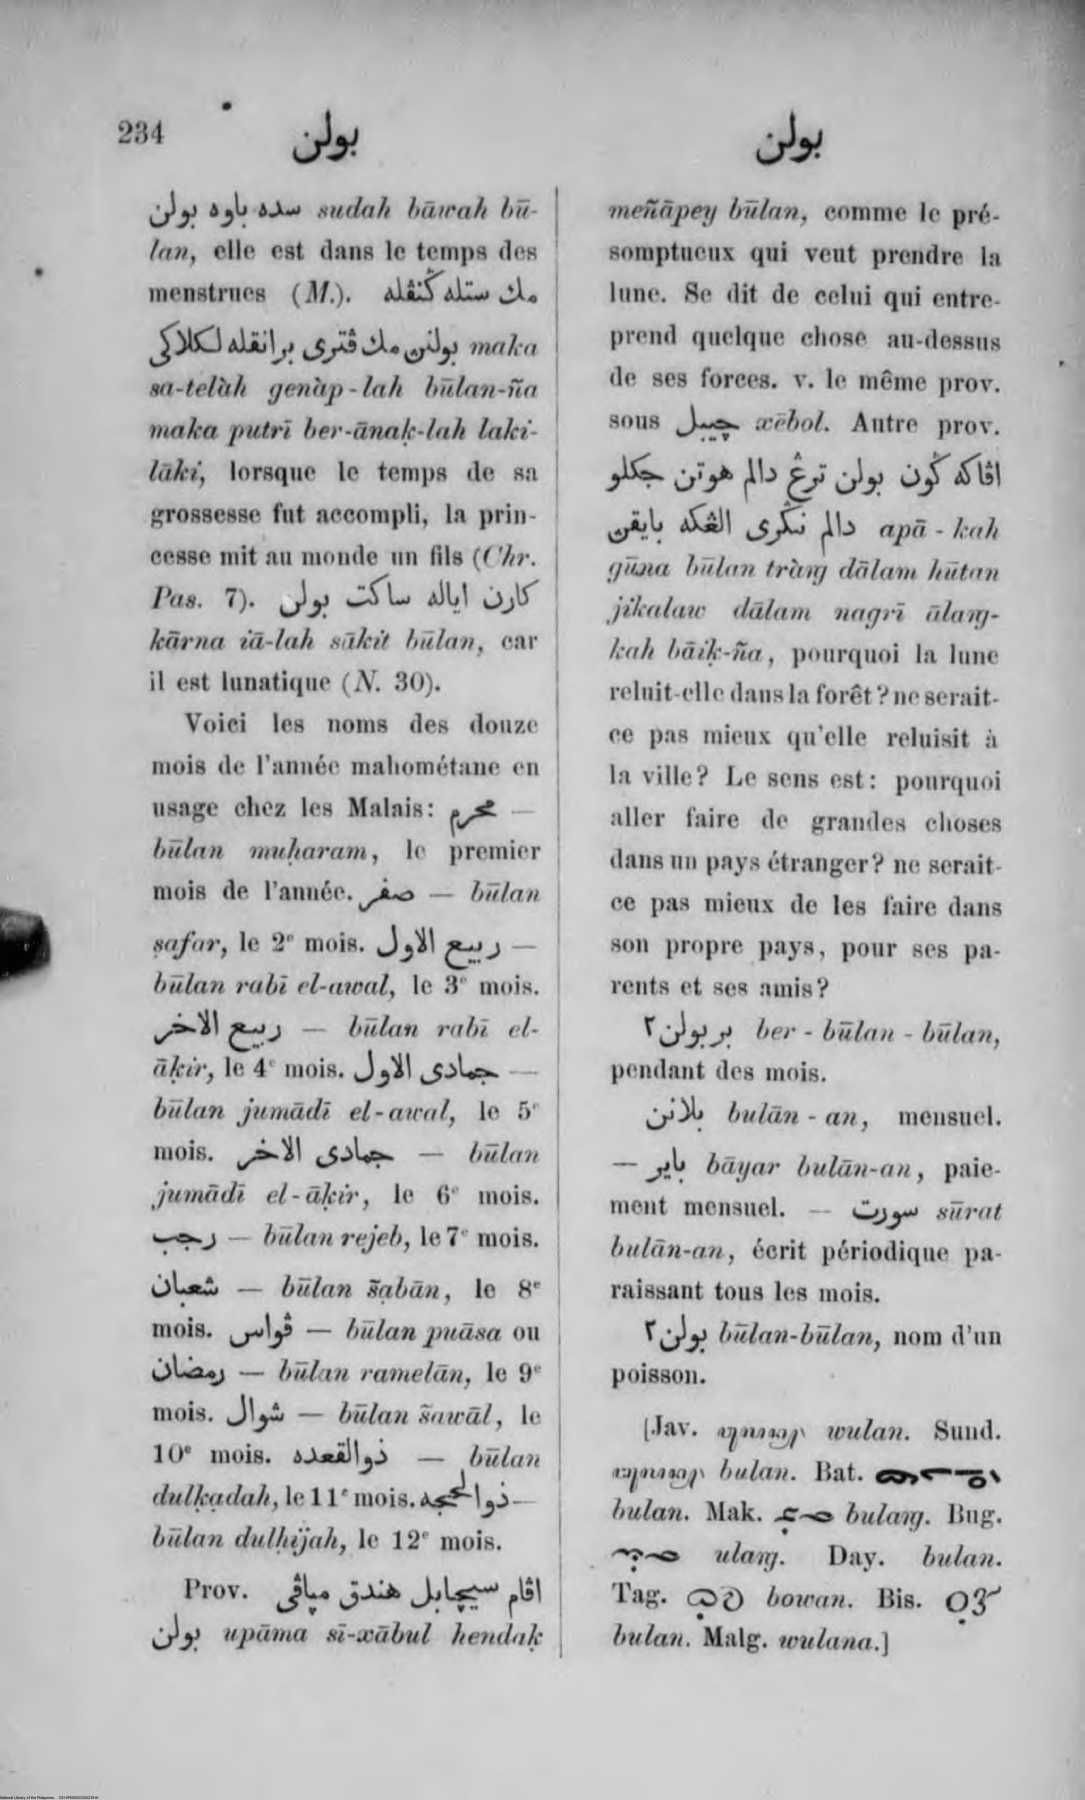 234
بولن
بولن
سده باوه بولن sudah bāwah bū-
lan, elle est dans le temps des
menstrues (M.). مك ستله ڬنڤله
بولنڽ مك ڤتري برانقله لكلاكي maka
sa-telàh genàp-lah būlan-ña
maka putrī ber-ānaḳ-lah laki-
lāki, lorsque le temps de sa
grossesse fut accompli, la prin-
cesse mit au monde un fils (Chr.
Pas. 7). كارن اياله ساكت بولن
kārna iā-lah sākit būlan, car
il est lunatique (N. 30).
Voici les noms des douze
mois de l'année mahométane en
usage chez les Malais: محرم —
būlan muḥaram, le premier
mois de l'année. صفر — būlan
ṣafar, le 2e mois. ربيع الاول —
būlan rabī el-awal, le 3e mois.
ربيع الاخر — būlan rabī el-
āḳir, le 4e mois. جمادى الاول —
būlan jumādī el-awal, le 5e
mois. جمادى الاخر — būlan
jumādī el-āḳir, le 6e mois.
رجب — būlan rejeb, le 7e mois.
شعبان — būlan s̃ạbān, le 8e
mois. ڤواس — būlan puāsa ou
رمضان — būlan ramelān, le 9e
mois. شوال — būlan s̃awāl, le
10e mois. ذوالقعده — būlan
dulḳạdah, le 11e mois. ذوالحجه —
būlan dulḥijjah, le 12e mois.
Prov. اڤام سيچابل هندق مڽاڤي
بولن upāma sī-xābul hendaḳ
meñāpey būlan, comme le pré-
somptueux qui veut prendre la
lune. Se dit de celui qui entre-
prend quelque chose au-dessus
de ses forces. v. le même prov.
sous چيبل xēbol. Autre prov.
اڤاكه ڬون بولن ترڠ دالم هوتن جكلو
دالم نڬري الڠكه بايقڽ apā-kah
gūna būlan tràṇg dālam hūtan
jikalaw dālam nagrī ālaṇg-
kah bāiḳ-ña, pourquoi la lune
reluit-elle dans la forêt? ne serait-
ce pas mieux qu'elle reluisit à
la ville? Le sens est: pourquoi
aller faire de grandes choses
dans un pays étranger? ne serait-
ce pas mieux de les faire dans
son propre pays, pour ses pa-
rents et ses amis?
بربولن٢ ber-būlan-būlan,
pendant des mois.
بلانن bulān-an, mensuel.
— باير bāyar bulān-an, paie-
ment mensuel. — سورت sūrat
bulān-an, écrit périodique pa-
raissant tous les mois.
بولن٢ būlan-būlan, nom d'un
poisson.
[Jav. wulan. Sund.
bulan. Bat.
bulan. Mak. bulaṇg. Bug.
ulaṇg. Day. bulan.
Tag. bowan. Bis.
bulan. Malg. wulana.]